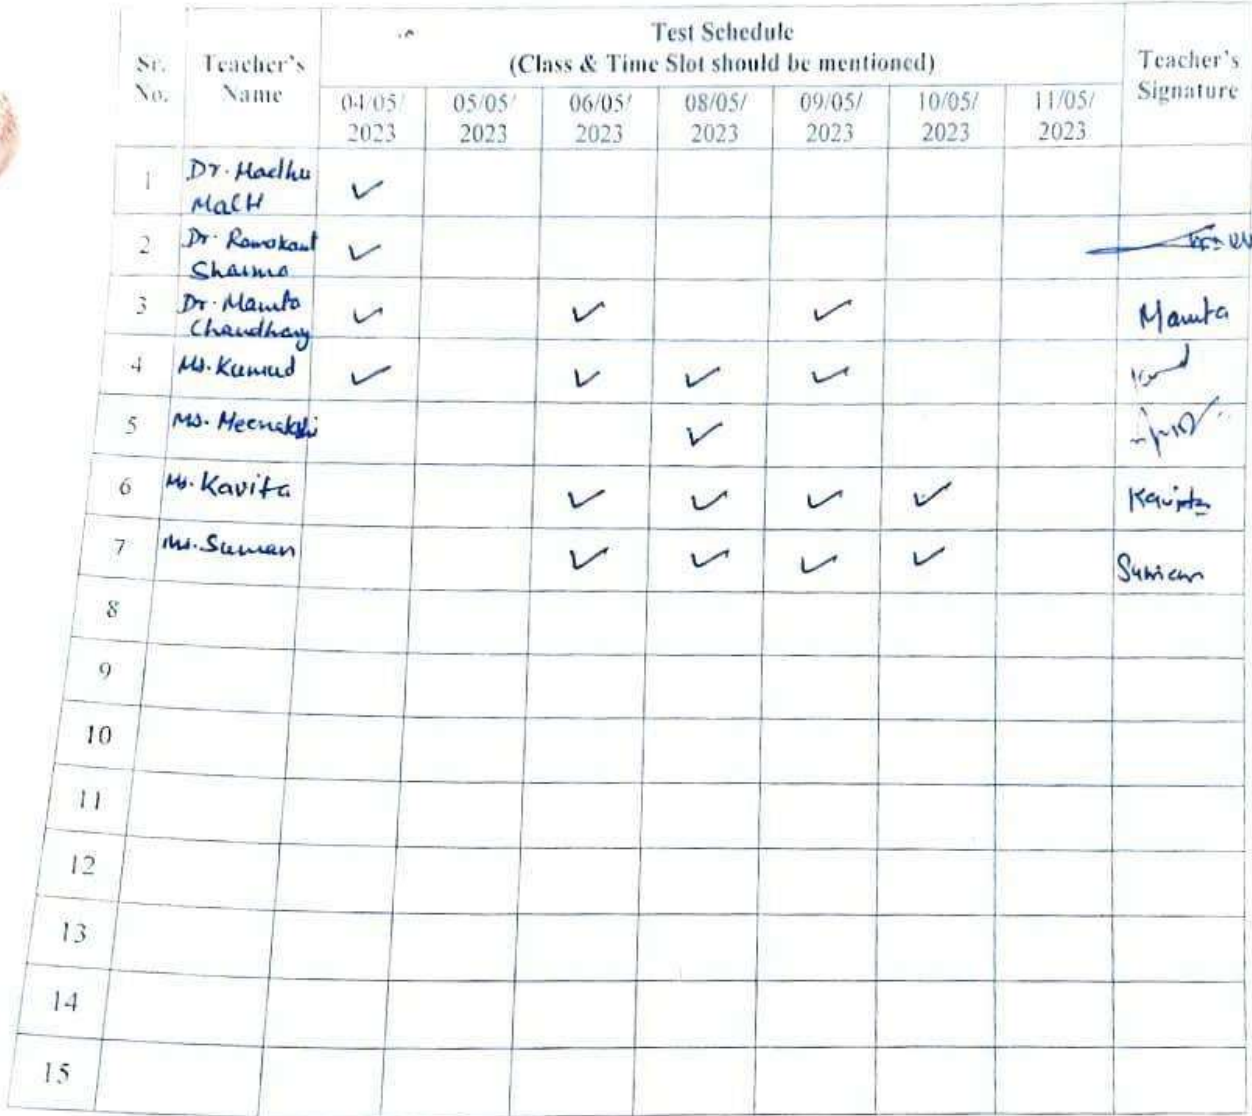 Test Schedule
(Class & Time Slot should be mentioned)
Sr.
No.
Teacher's
Name
04/05/
2023
05/05/
2023
06/05/
2023
08/05/
2023
09/05/
2023
10/05/
2023
11/05/
2023
Teacher's
Signature
1 Dr. Madhu ✓
2 Dr. Ramakant ✓
Sharma
3 Dr. Mamta ✓ ✓ ✓ Mamta
Chaudhary
4 Ms. Kumud ✓ ✓ ✓ ✓
5 Ms. Meenakshi ✓
6 Ms. Kavita ✓ ✓ ✓ ✓ Kavita
7 Ms. Suman ✓ ✓ ✓ ✓ Suman
8
9
10
11
12
13
14
15